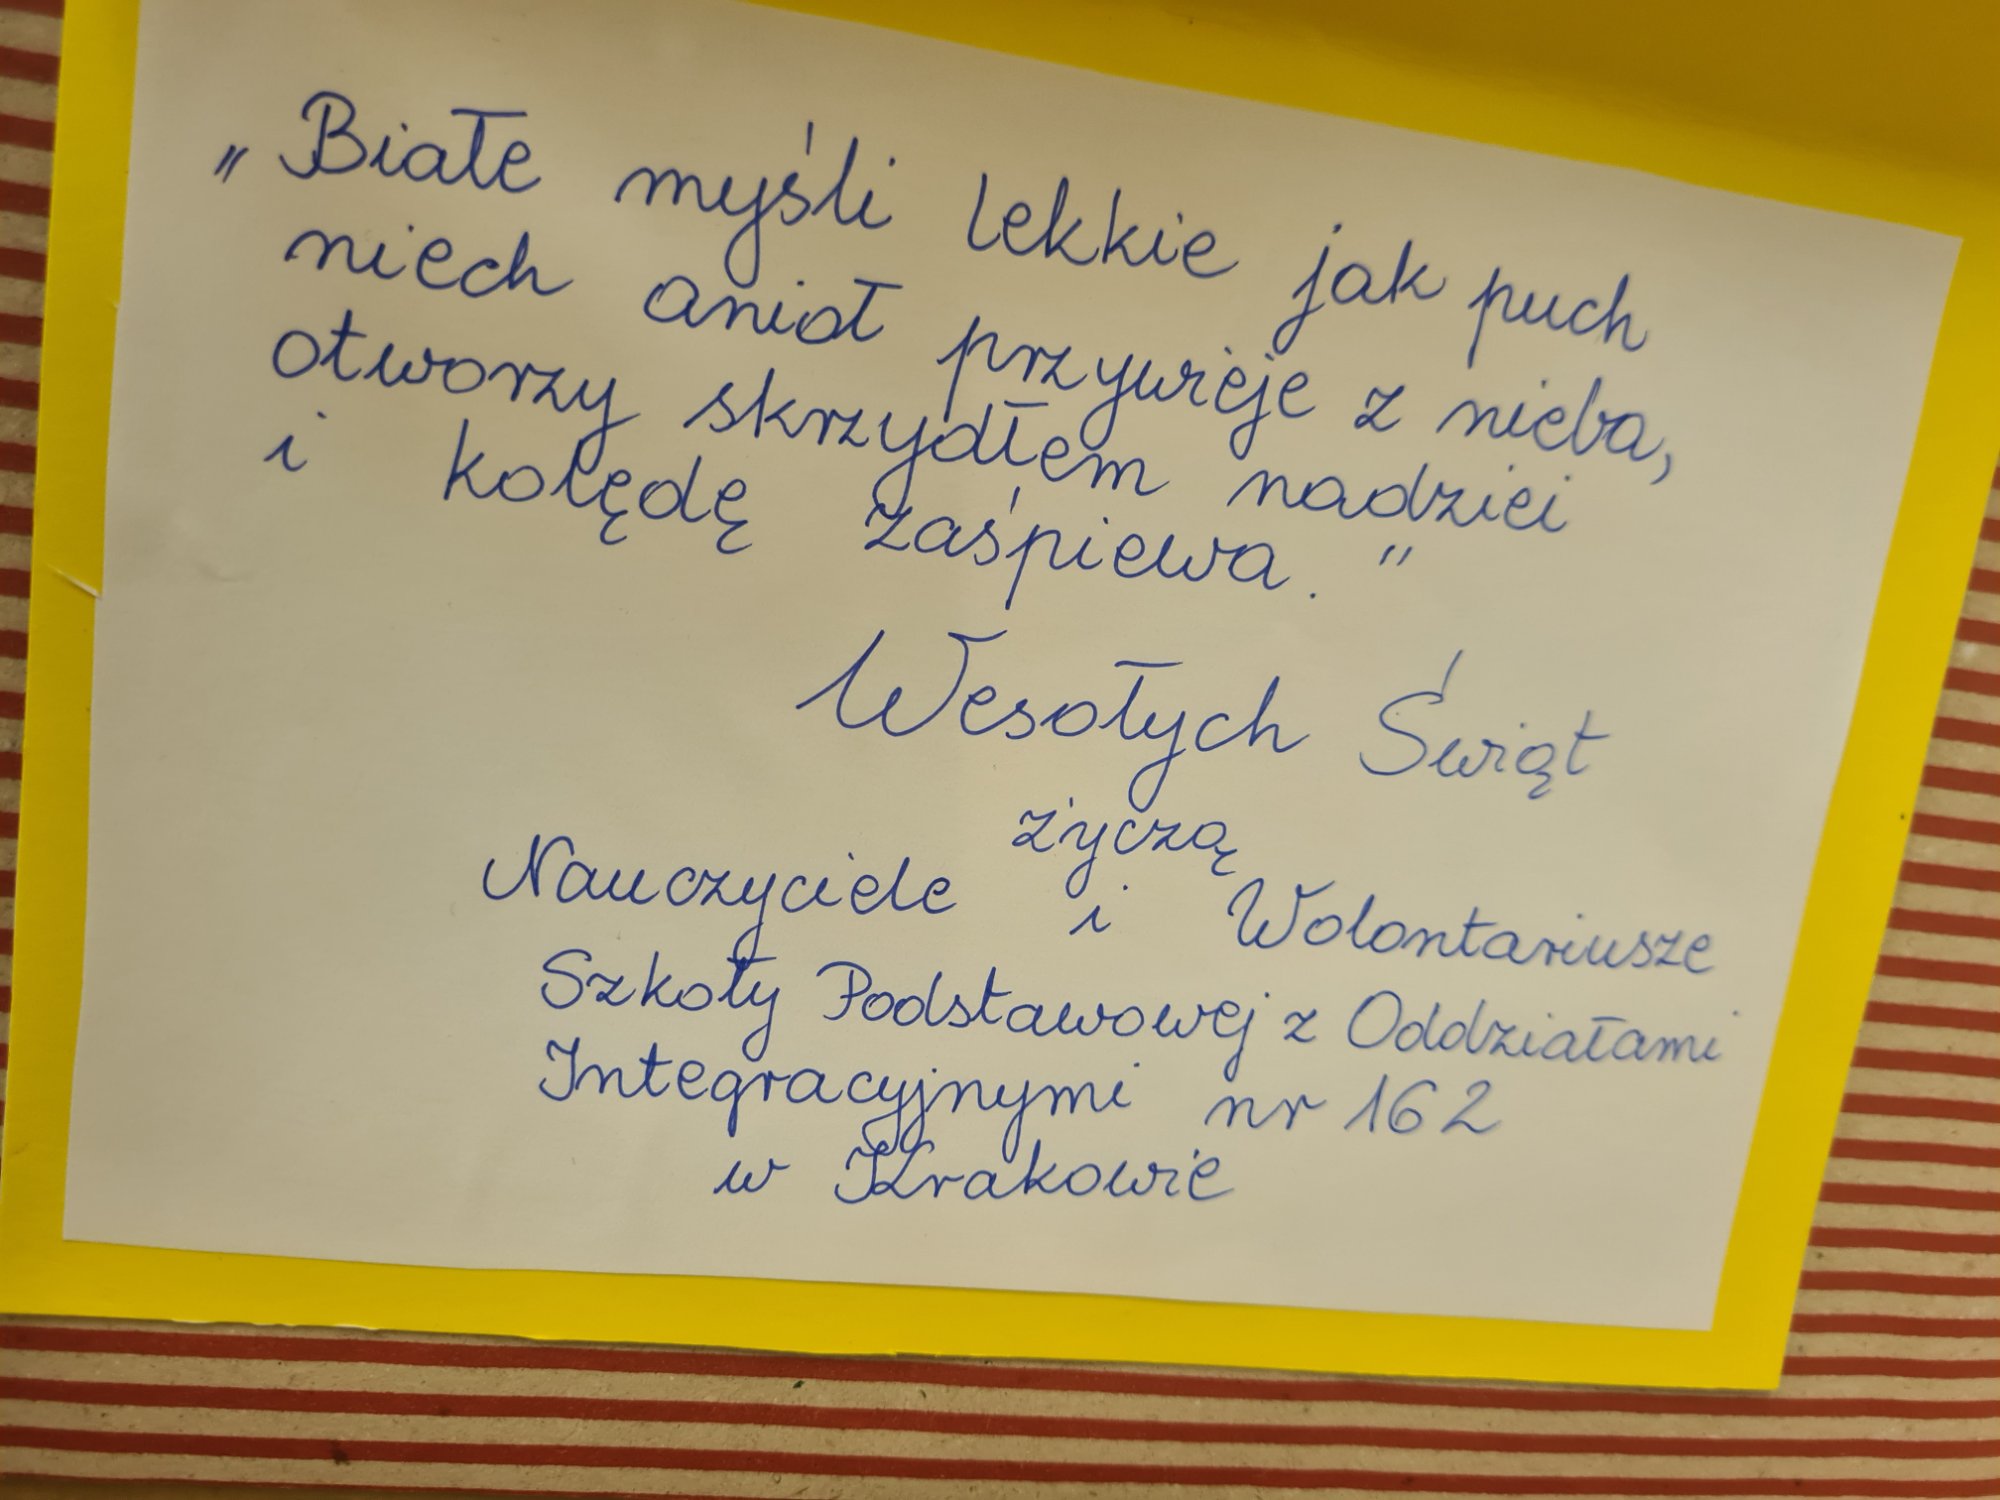 „Białe myśli lekkie jak puch
niech anioł przywieje z nieba,
otworzy skrzydłem nadziei
i kolędę zaśpiewa."
Wesołych Świąt
życzą
Nauczyciele i Wolontariusze
Szkoły Podstawowej z Oddziałami
Integracyjnymi nr 162
w Krakowie